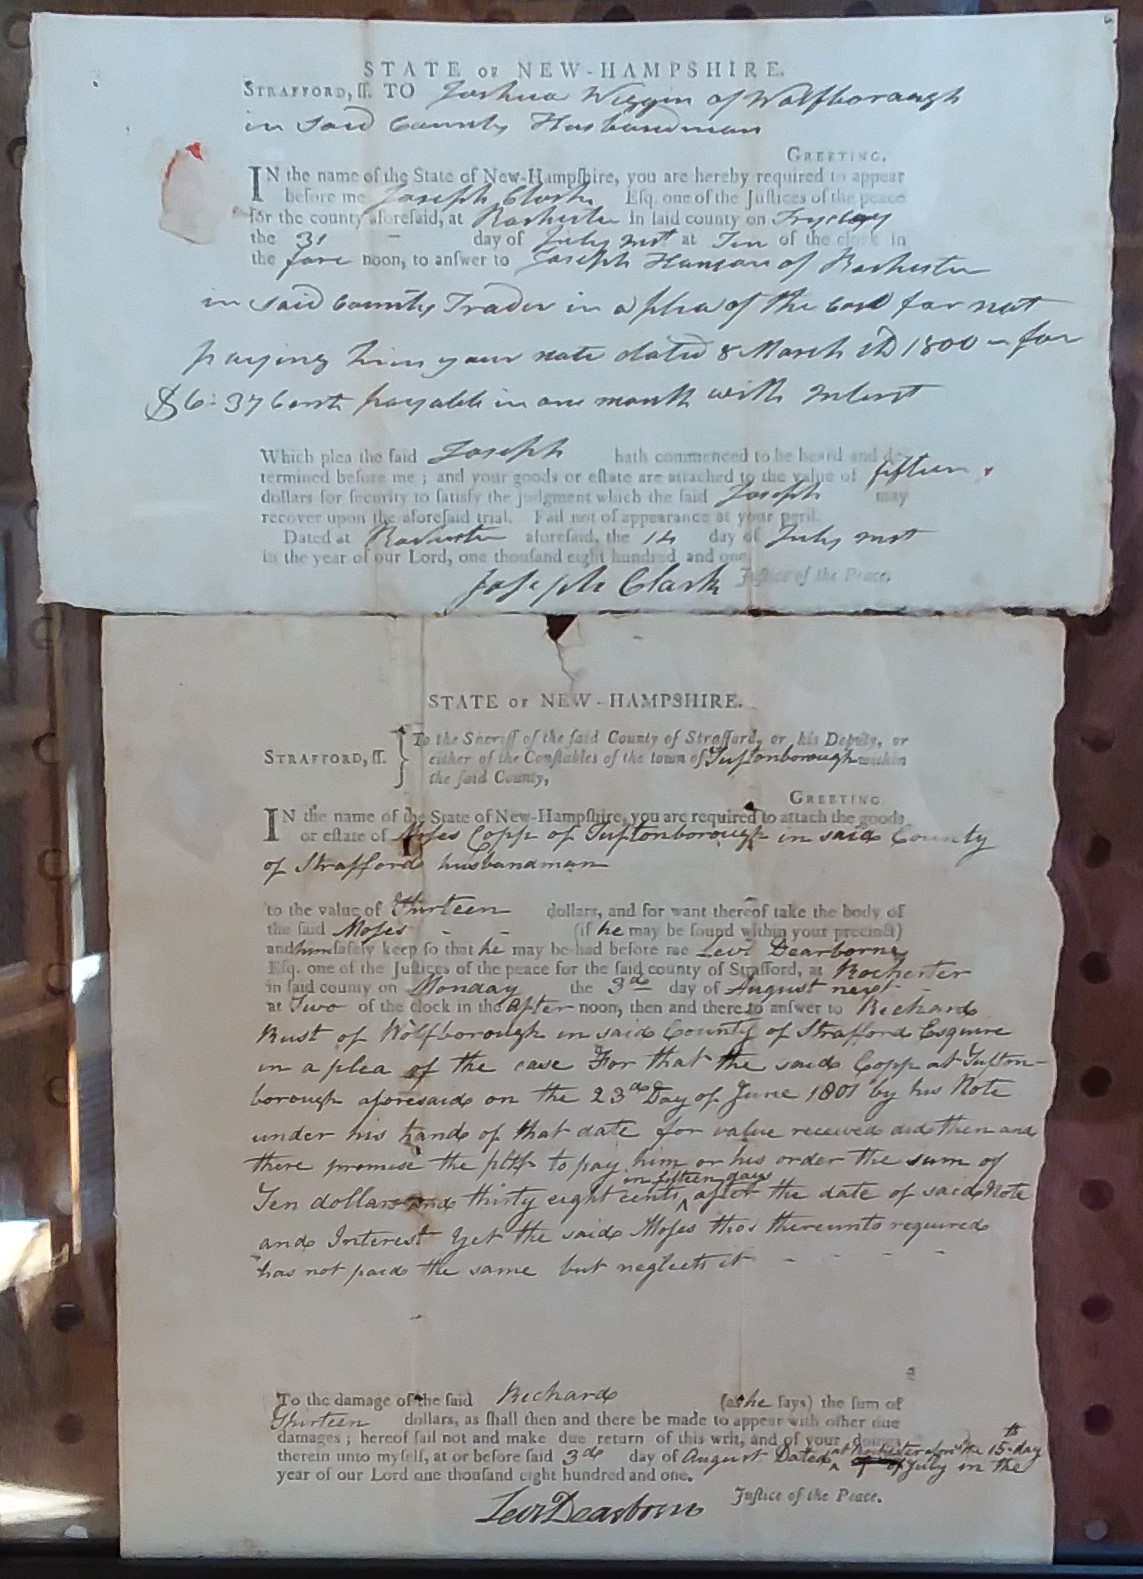 STATE OF NEW-HAMPSHIRE.
STRAFFORD, ſſ. TO Joshua Wiggin of Wolfborough
in said County Husbandman
GREETING.
IN the name of the State of New-Hampſhire, you are hereby required to appear
before me Joseph Clark Eſq. one of the Juſtices of the peace
for the county aforeſaid, at Rochester in ſaid county on Fryday
the 31 - day of July inst at Ten of the clock in
the fore noon, to anſwer to Joseph Hanson of Rochester
in said County Trader in a plea of the Case for not
paying him your note dated 8 March AD 1800 - for
$6:37 Cents payable in one month with Interest
Which plea the ſaid Joseph hath commenced to be heard and de-
termined before me ; and your goods or eſtate are attached to the value of fifteen
dollars for ſecurity to ſatisfy the judgment which the ſaid Joseph may
recover upon the aforeſaid trial. Fail not of appearance at your peril.
Dated at Rochester aforeſaid, the 14 day of July inst
in the year of our Lord, one thouſand eight hundred and one.
Joseph Clark Juſtice of the Peace.
STATE OF NEW-HAMPSHIRE.
STRAFFORD, ſſ. } To the Sheriff of the ſaid County of Strafford, or his Deputy, or
either of the Conſtables of the town of Tuftonborough within
the ſaid County,
GREETING.
IN the name of the State of New-Hampſhire, you are required to attach the goods
or eſtate of Moſes Copp of Tuftonborough in said County
of Strafford husbandman
to the value of Thirteen dollars, and for want thereof take the body of
the ſaid Moſes - - (if he may be found within your precinct)
and him ſafely keep ſo that he may be had before me Levi Dearborne
Eſq. one of the Juſtices of the peace for the ſaid county of Strafford, at Rochester
in ſaid county on Monday the 3d day of August next -
at Two of the clock in the After noon, then and there to anſwer to Richard
Rust of Wolfborough in said County of Strafford Esquire
in a plea of the case For that the said Copp at Tufton-
borough aforesaid on the 23d Day of June 1801 by his Note
under his hand of that date for value received did then and
there promise the pltf to pay him or his order the sum of
in fifteen days
Ten dollars and thirty eight cents ^ after the date of said Note
and Interest Yet the said Moſes tho's thereunto required
has not paid the same but neglects it - - - -
To the damage of the ſaid Richard (as he ſays) the ſum of
Thirteen dollars, as ſhall then and there be made to appear with other due
damages ; hereof fail not and make due return of this writ, and of your doings
therein unto myſelf, at or before ſaid 3d day of August Dated at Rochester the 15th day
of July in the
year of our Lord one thouſand eight hundred and one.
Levi Dearborn Juſtice of the Peace.